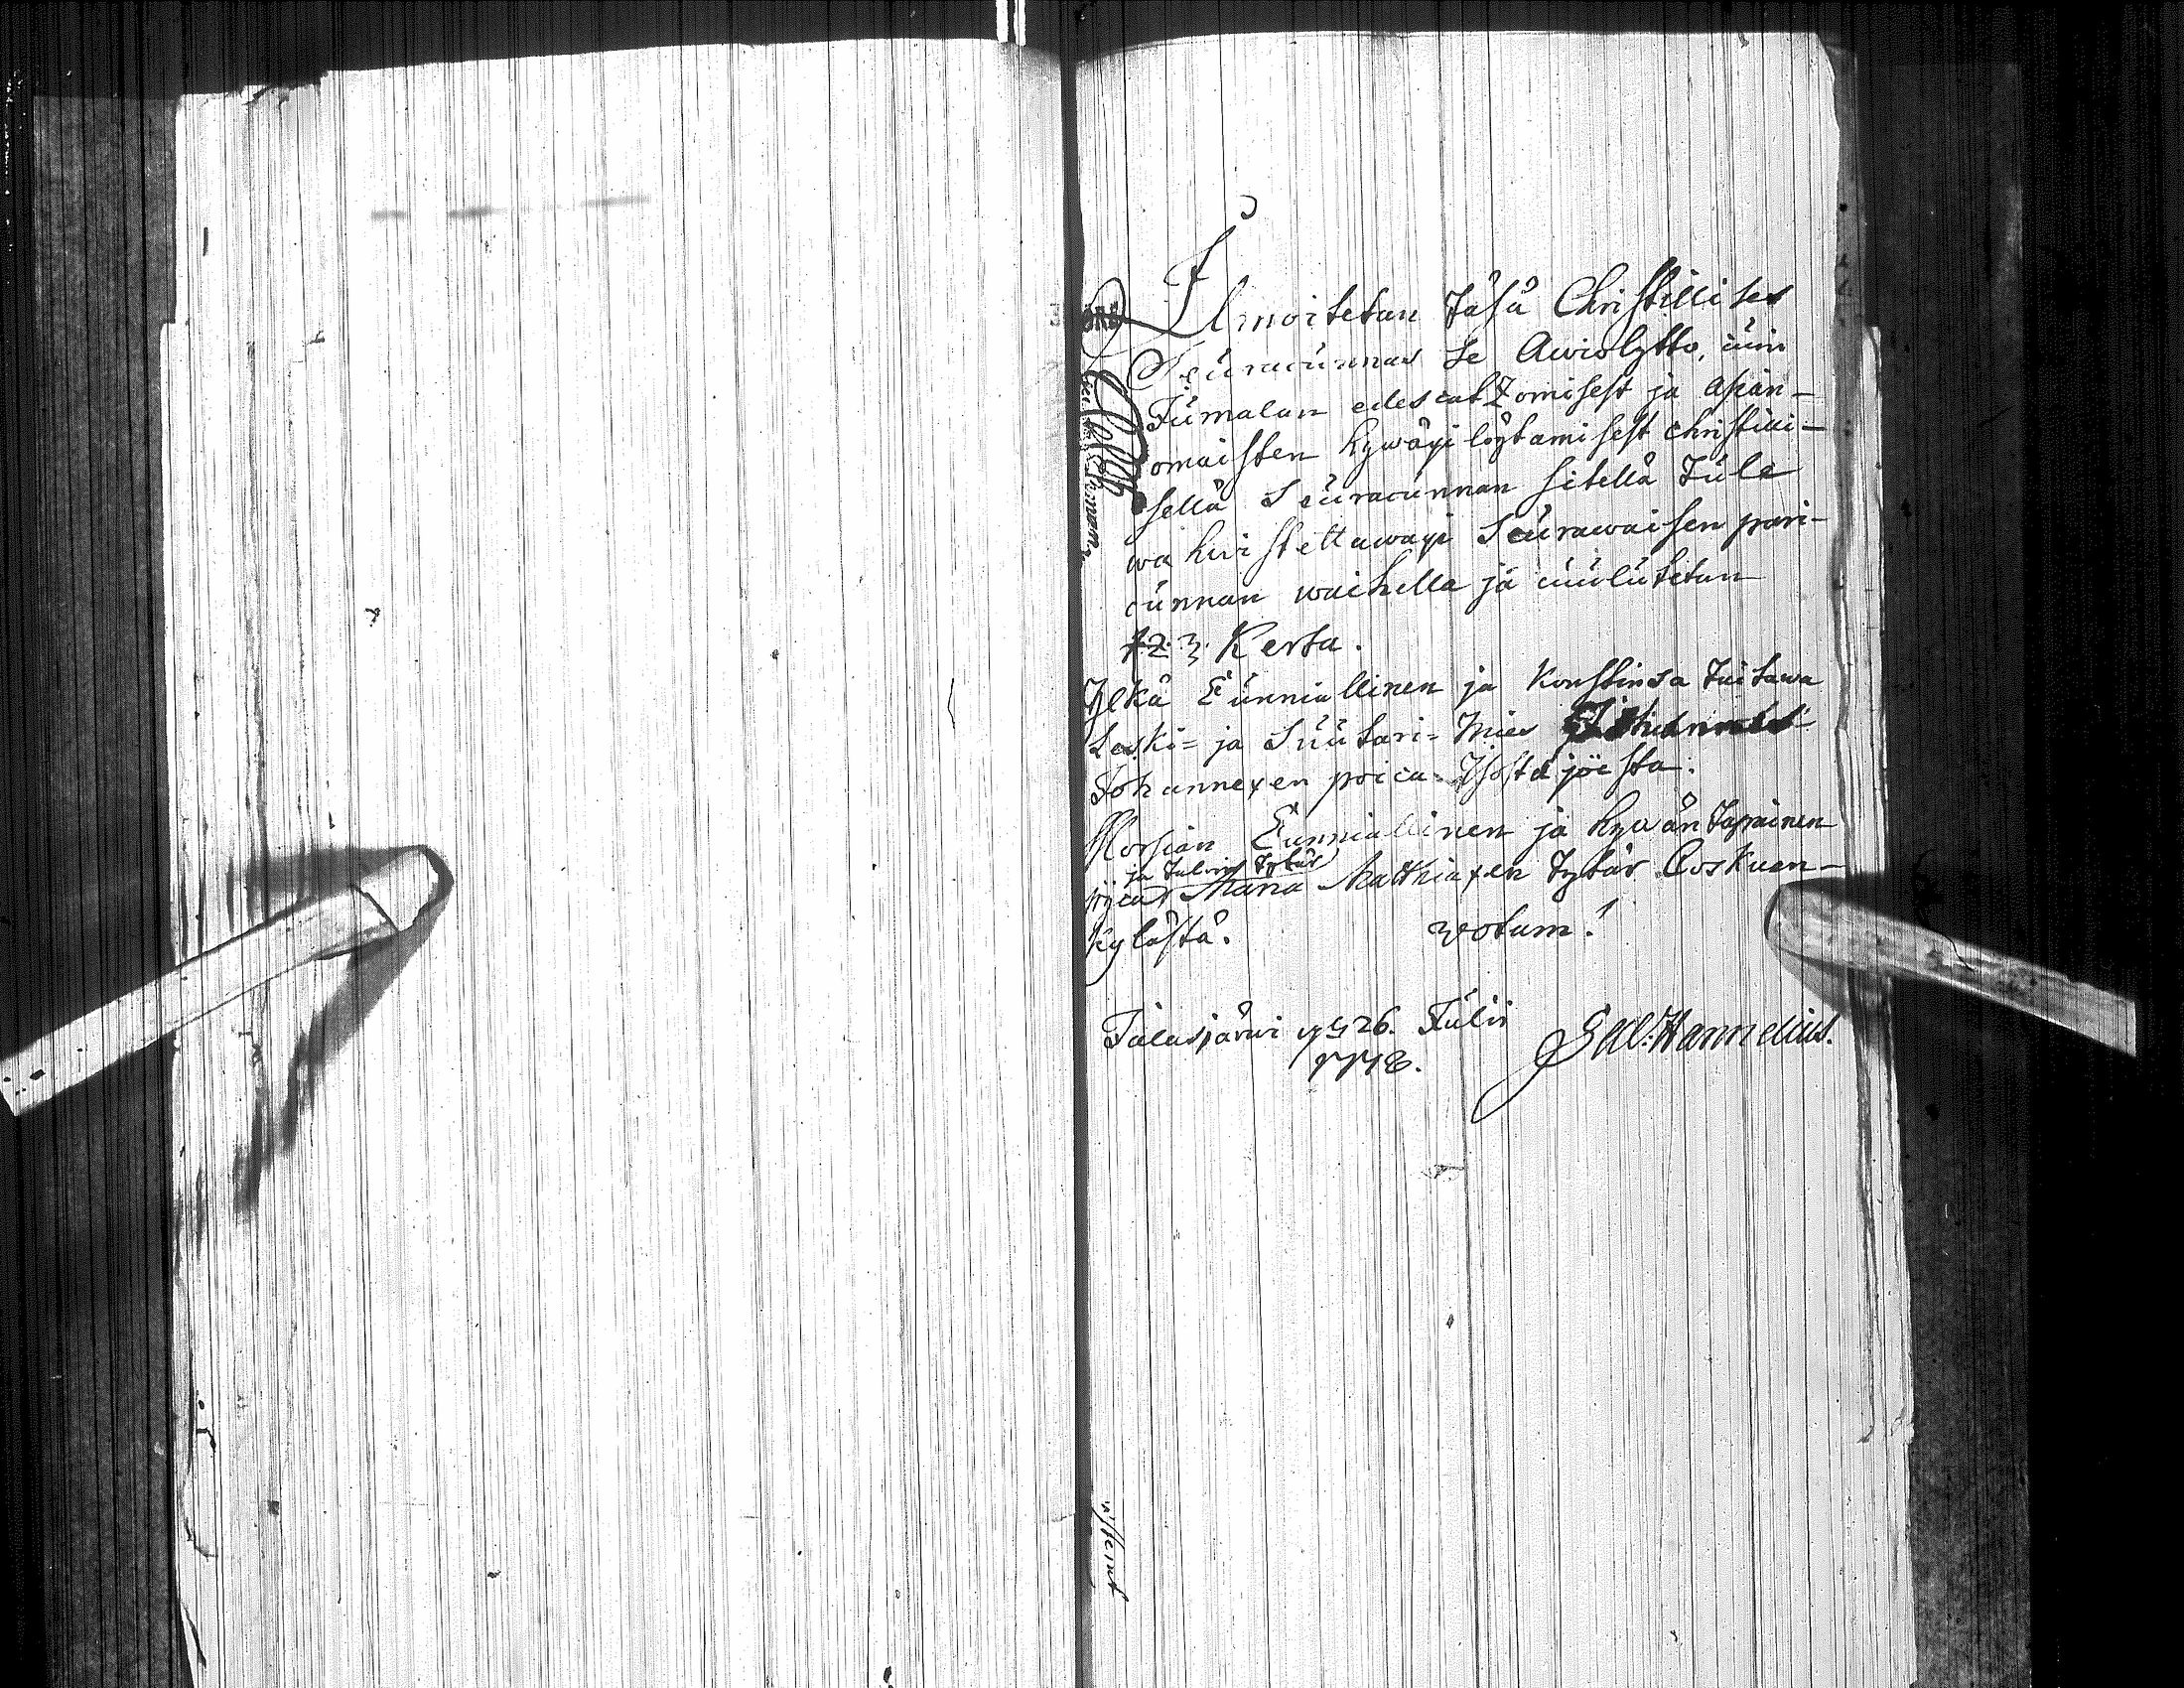 Ilmoitetan täsä Christillises
Seuracunnas se Awiolytto, cuin
Jumalan edescatzomisest ja asian-
omaisten hywäxi löytämisest christilli-
sellä Seuracunnan sitellä tule
wahwistettawaxi seurawaisen pari-
cunnan waihella ja cuulutetan
1. 2. 3. Kerta.
Yljkä Cunniallinen ja Konstinsa taitawa
Leski- ja Suutari- Mies
Johannexen poica Isosta joesta.
Morsian Cunniallinen ja hywäntapainen
ja Talon tytär
pijca Maria Matthiaxen tytär Coskuen-
kylästä. Votum!
Jalasjärwi 26. Julii
1778. Gab: Hannelius.